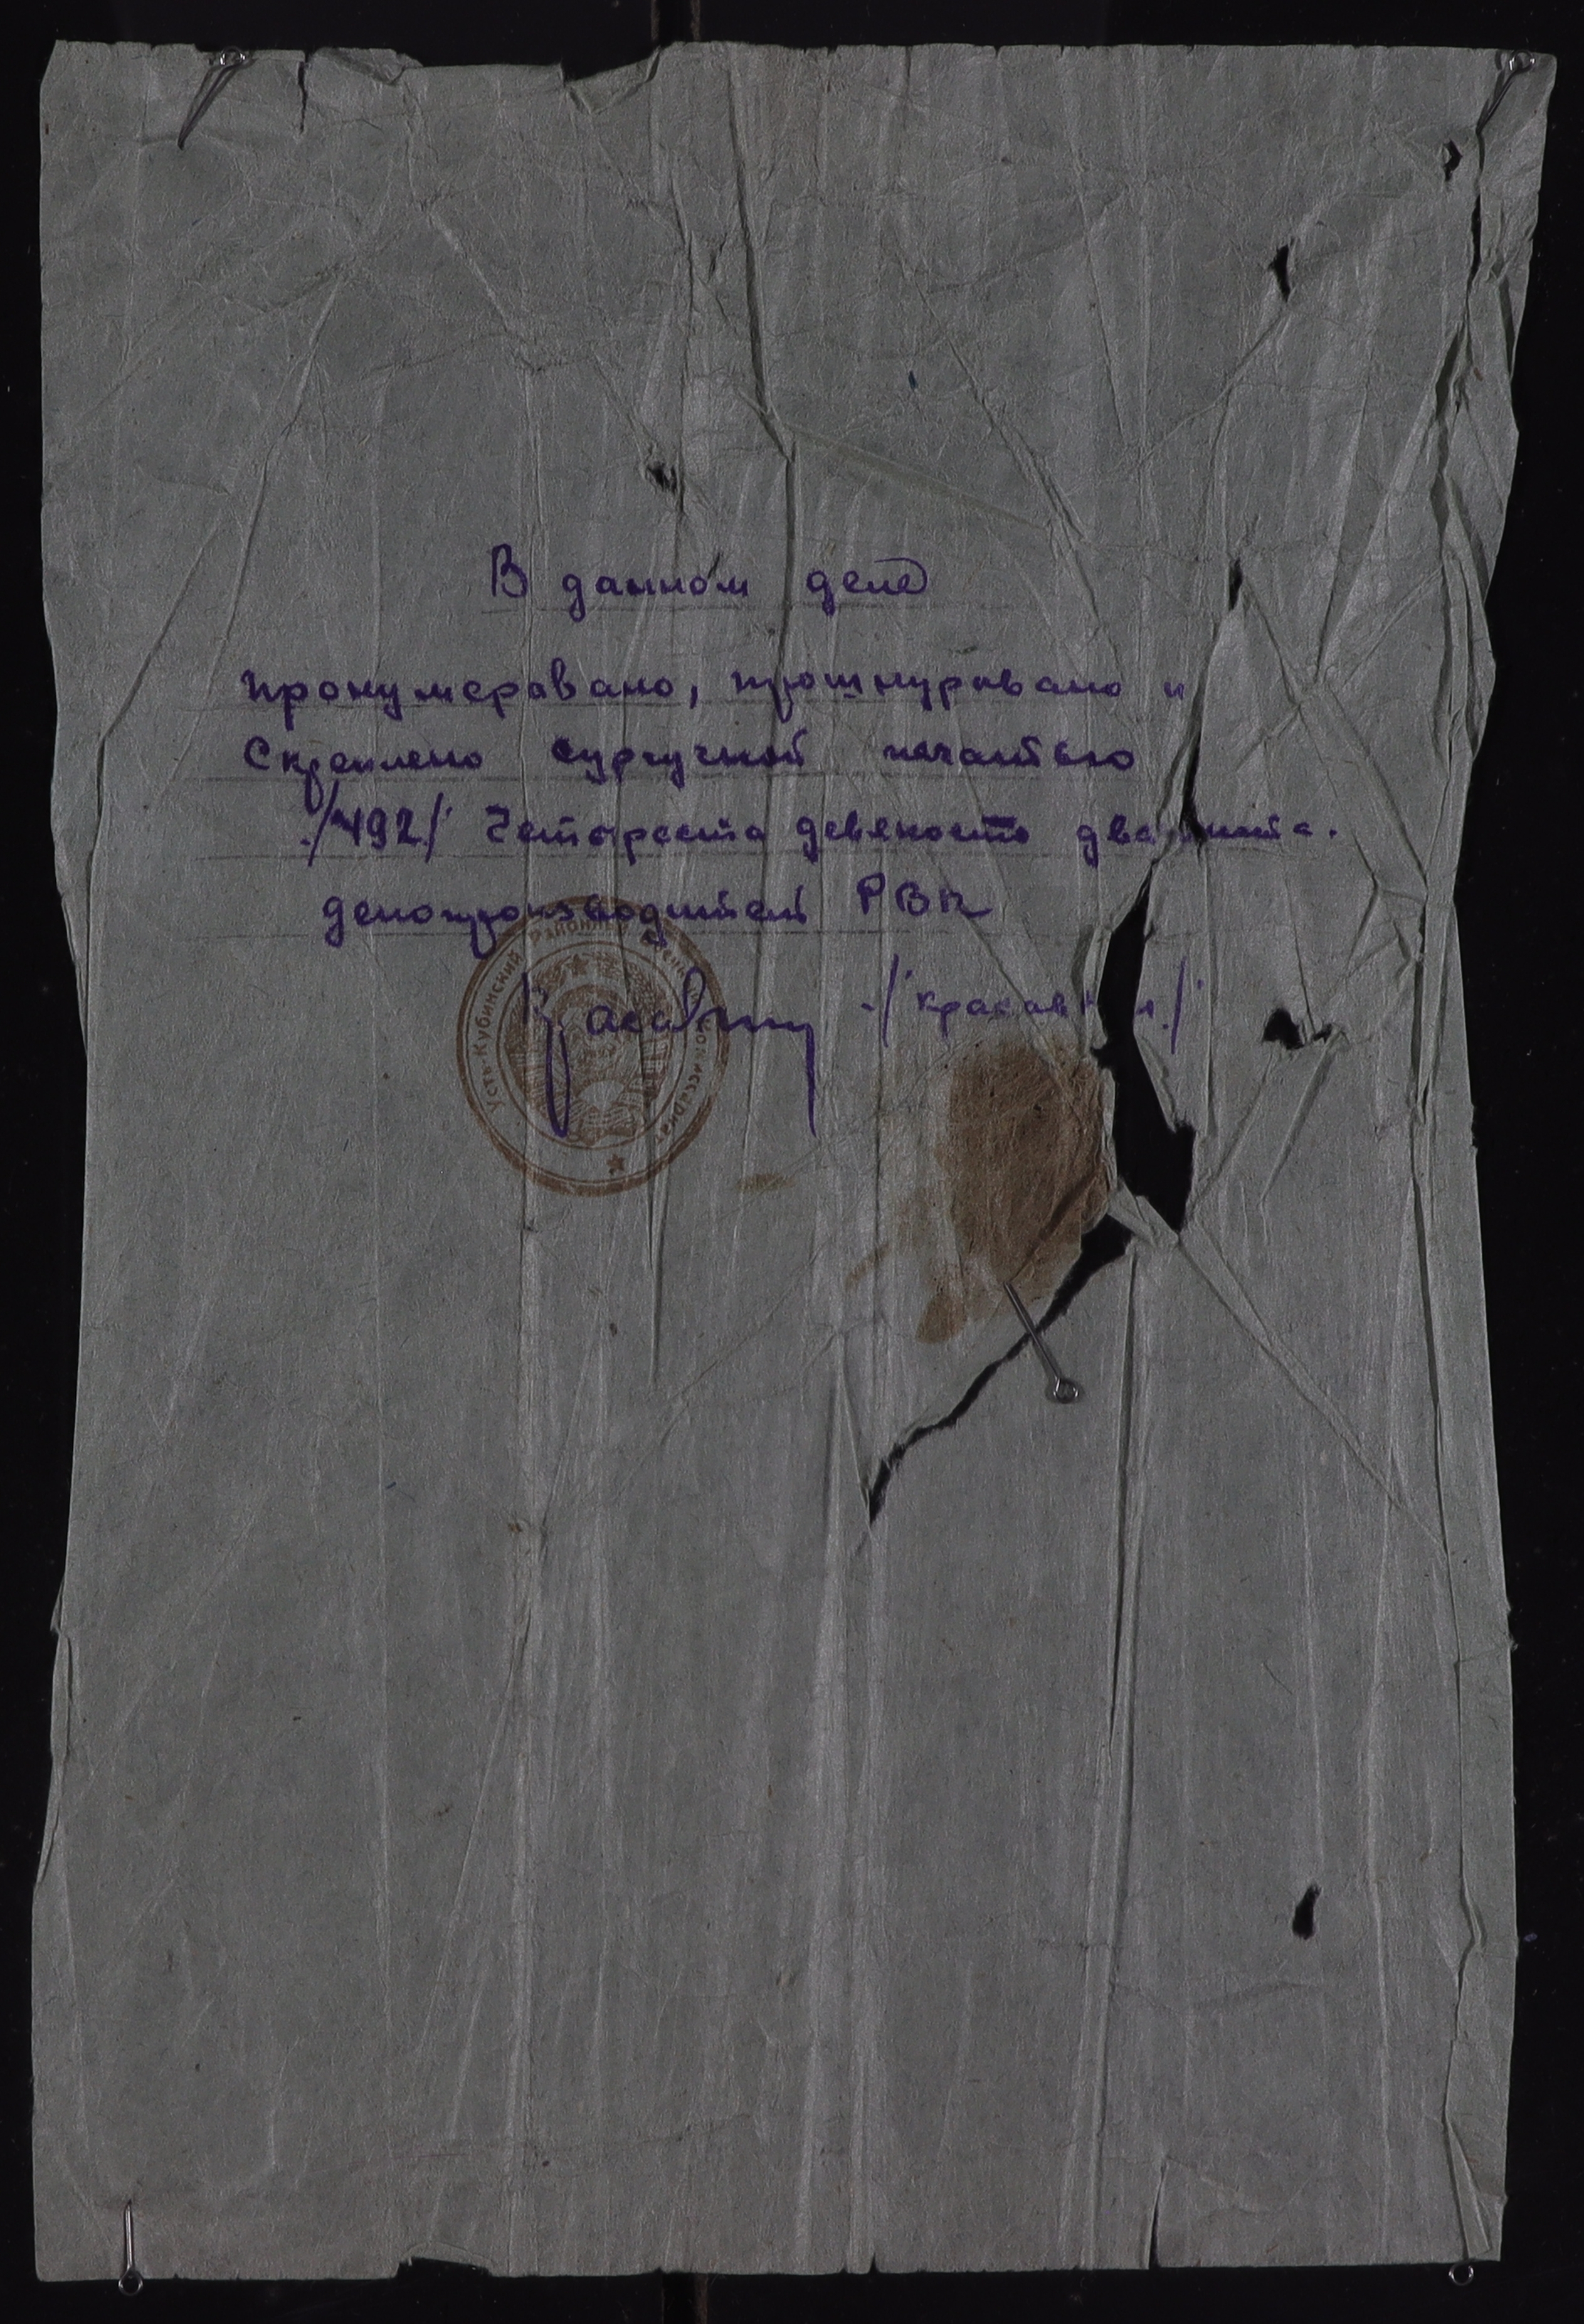 В данном деле
пронумеровано, прошнуровано и
Скреплено сургучной печатью
./492/ Четыреста девяносто два листа.
делопроизводитель РВК
./красав
Усть-Кубинский Районный Военный Комиссариат